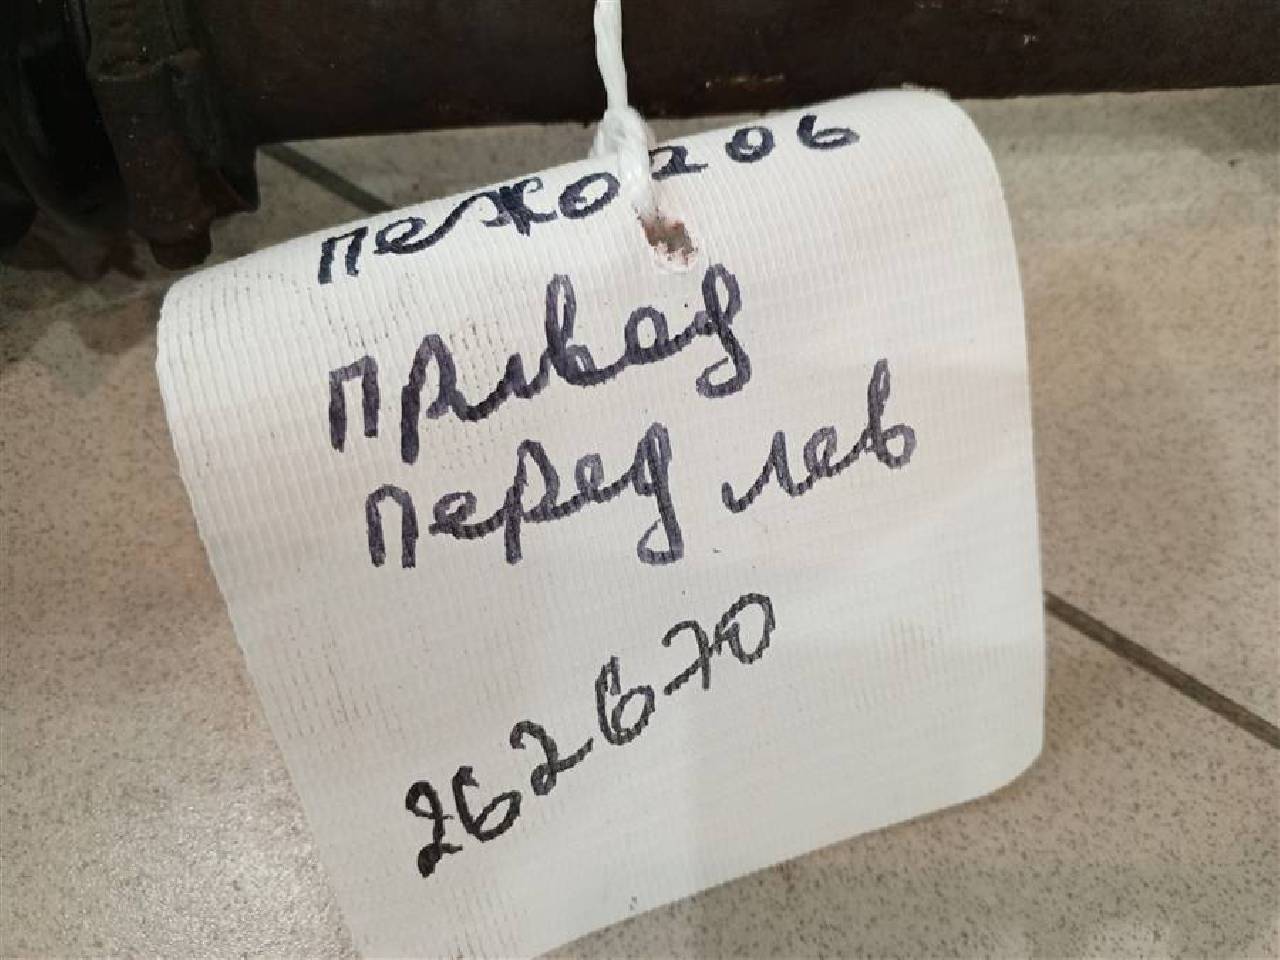 пежо 206
привад
перед лев
262670